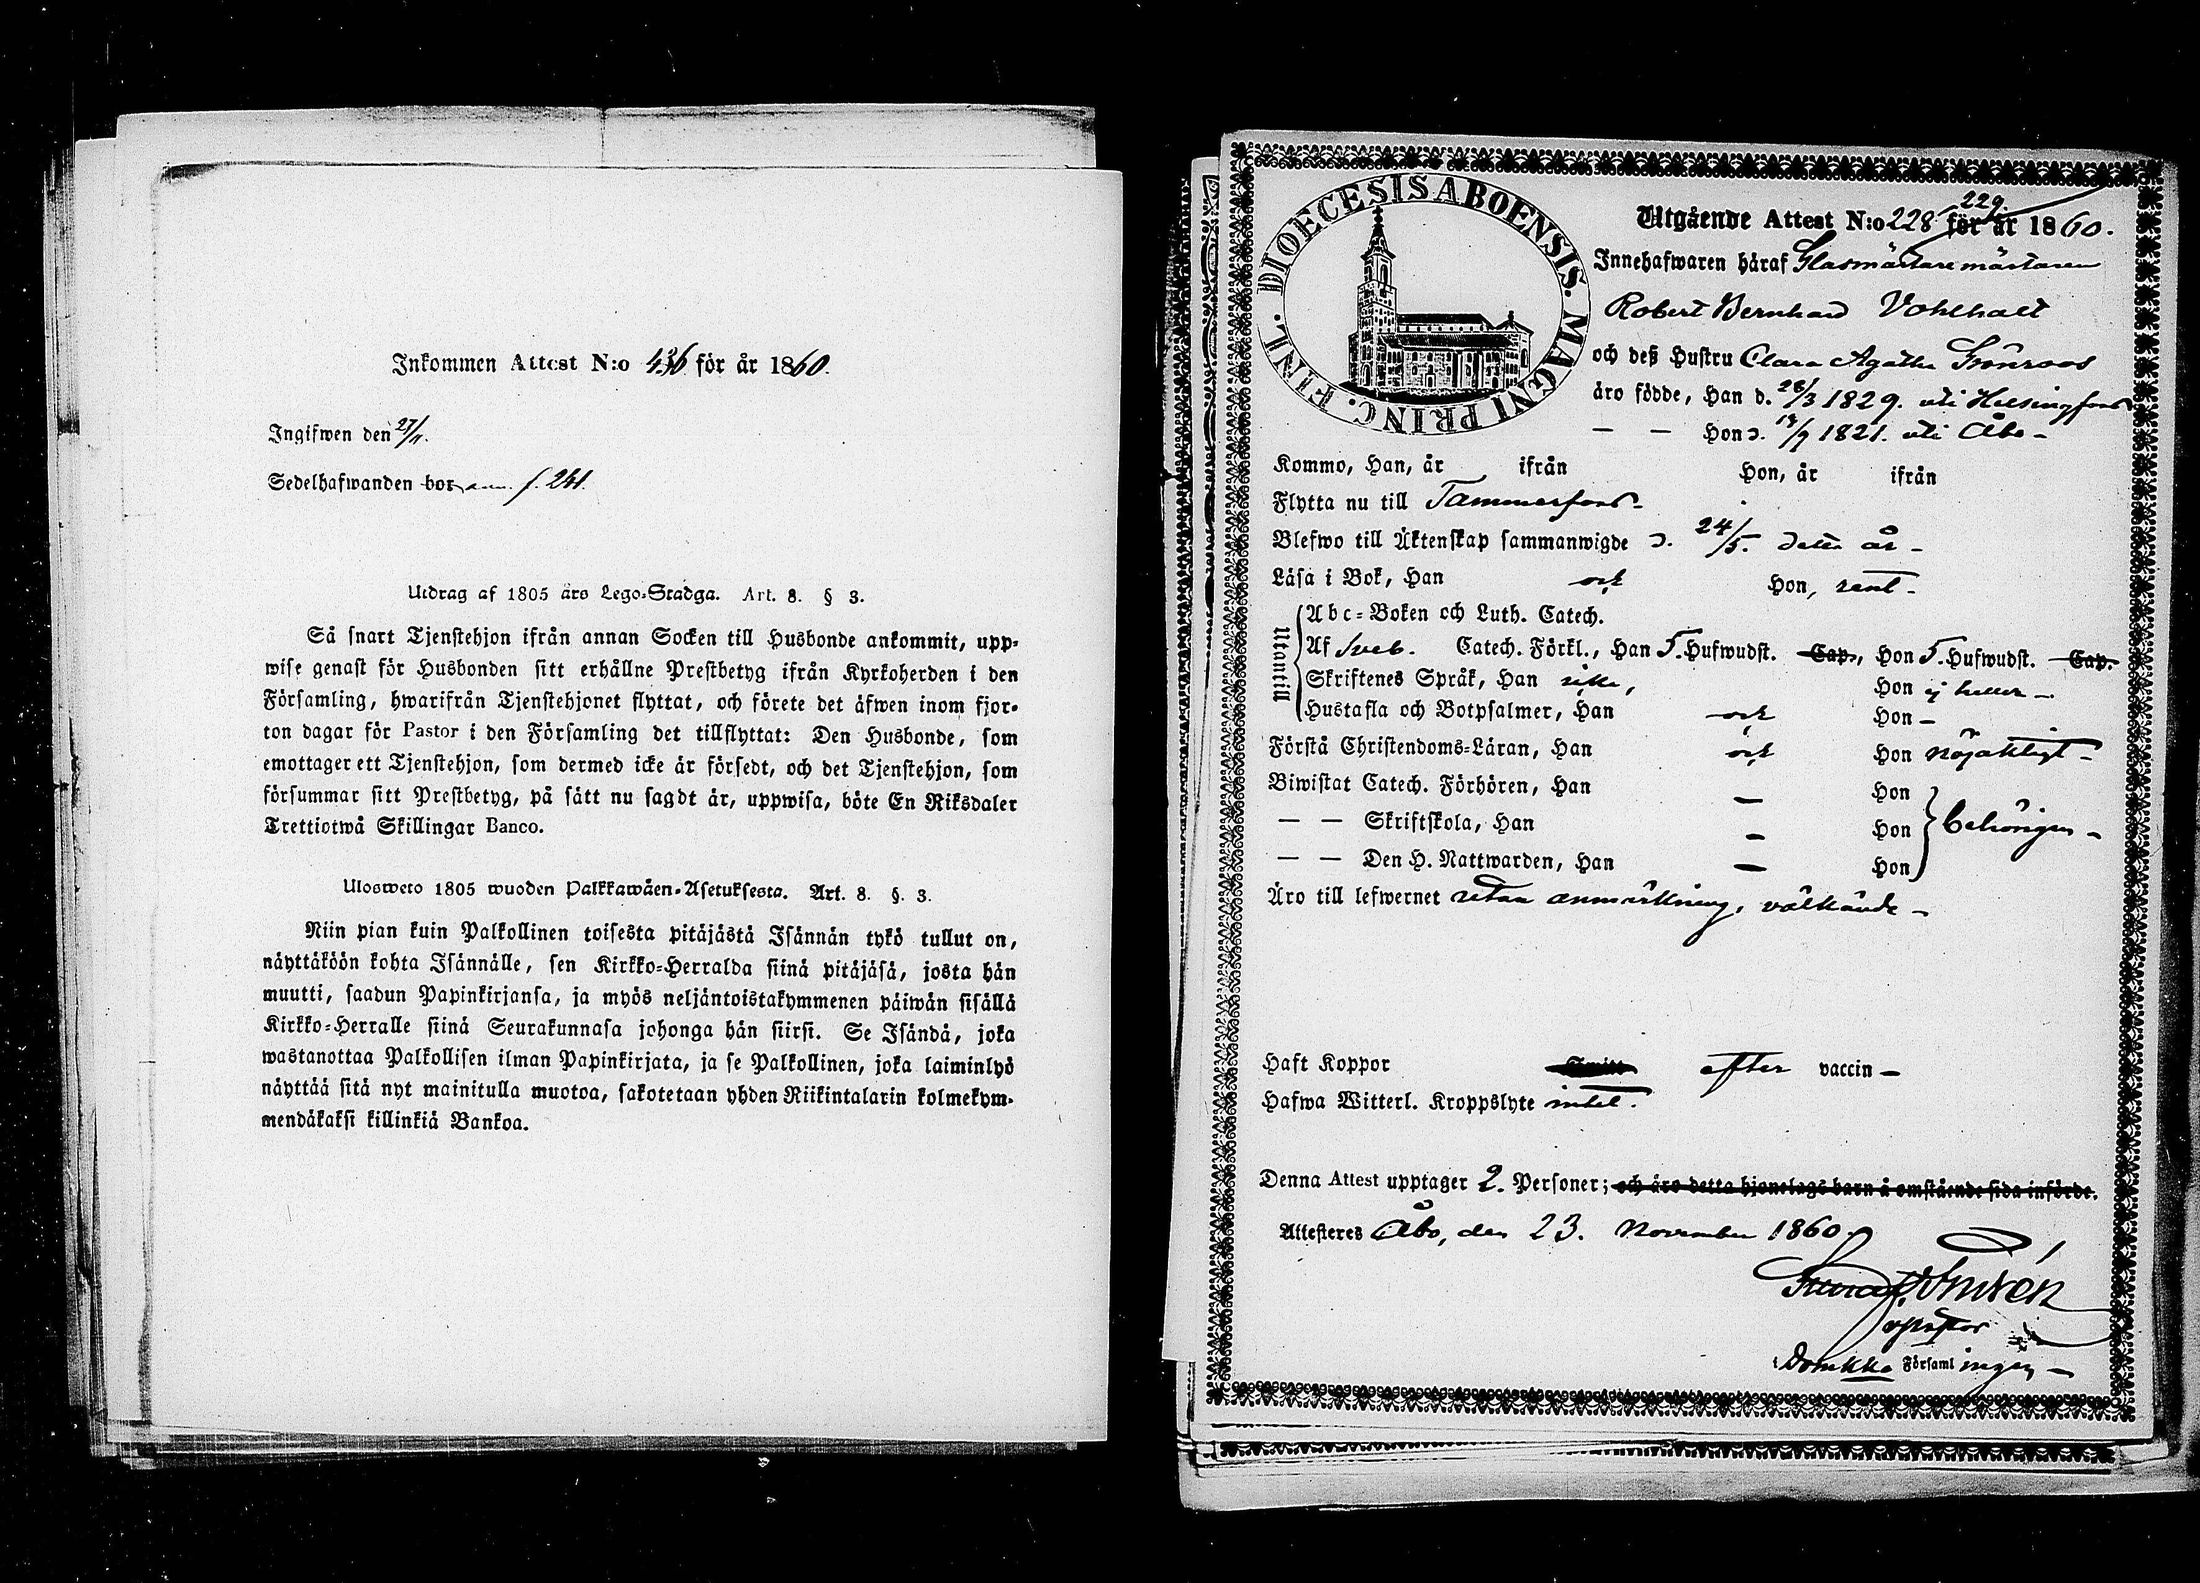 Inkommen Attest N:o 436 för år 1860.
Ingifwen den 27/11.
Sedelhafwanden bor ann. f. 241.
Utdrag af 1805 års Lego-Stadga. Art. 8. § 3.
Så snart Tjenstehjon ifrån annan Socken till Husbonde ankommit, upp-
wise genast för Husbonden sitt erhållne Prestbetyg ifrån Kyrkoherden i den
Församling, hwarifrån Tjenstehjonet flyttat, och förete det äfwen inom fjor-
ton dagar för Pastor i den Församling det tillflyttat: Den Husbonde, som
emottager ett Tjenstehjon, som dermed icke är försedt, och det Tjenstehjon, som
försummar sitt Prestbetyg, på sätt nu sagdt är, uppwisa, böte En Riksdaler
Trettiotwå Skillingar Banco.
Uloswweto 1805 wuoden Palkkawäen-Asetuksesta. Art. 8. §. 3.
Niin pian kuin Palkollinen toisesta pitäjästä Isännän tykö tullut on,
näyttäköön kohta Isännälle, sen Kirkko-Herralda siinä pitäjäsä, josta hän
muutti, saadun Papinkirjansa, ja myös neljäntoistakymmenen päiwän sisällä
Kirkko-Herralle siinä Seurakunnasa johonga hän siirsi. Se Isändä, joka
wastanottaa Palkollisen ilman Papinkirjata, ja se Palkollinen, joka laiminlyö
näyttää sitä nyt mainitulla muotoa, sakotetaan yhden Riikintalarin kolmekym-
mendäkaksi killinkiä Bankoa.
DIOECESIS ABOENSIS. MAGNI PRINC. FINL.
229.
Utgående Attest N:o 228 för år 1860.
Innehafwaren häraf Glasmästaremästaren
Robert Bernhard Vohlhalt
och deß Hustru Clara Agatha Grönroos
äro födde, Han d. 28/3 1829. uti Helsingfors
— — Hon d. 17/9 1821. uti Åbo -
Kommo, Han, år ifrån Hon, år ifrån
Flytta nu till Tammerfors -
Blefwo till Äktenskap sammanwigde d. 24/5. detta år -
Läsa i Bok, Han och Hon, rent -
Utantill
Abc-Boken och Luth. Catech.
Af Sveb. Catech. Förkl., Han 5. Hufwudst. Cap., Hon 5. Hufwudst. Cap.
Skriftenes Språk, Han icke, Hon ej heller -
Hustafla och Botpsalmer, Han och Hon -
Förstå Christendoms-Läran, Han och Hon nöjaktligt -
Biwistat Catech. Förhören, Han — Hon
— — Skriftskola, Han — Hon behörigen -
— — Den H. Nattwarden, Han — Hon
Äro till lefwernet utan anmärkning, välkände -
Haft Koppor efter vaccin —
Hafwa Witterl. Kroppslyte intet.
Denna Attest upptager 2. Personer; och äro detta hjonelags barn å omstående sida införde.
Attesteres Åbo, den 23. November 1860
v pastor
i Domkko Församlingen —